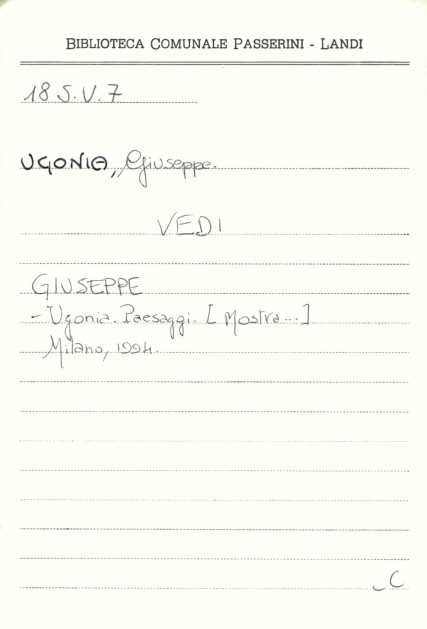 BIBLIOTECA COMUNALE PASSERINI - LANDI
18 S.V.7
UGONIA, Giuseppe.
VEDI
GIUSEPPE
- Ugonia. Paesaggi. [Mostra...]
Milano, 1994.
C